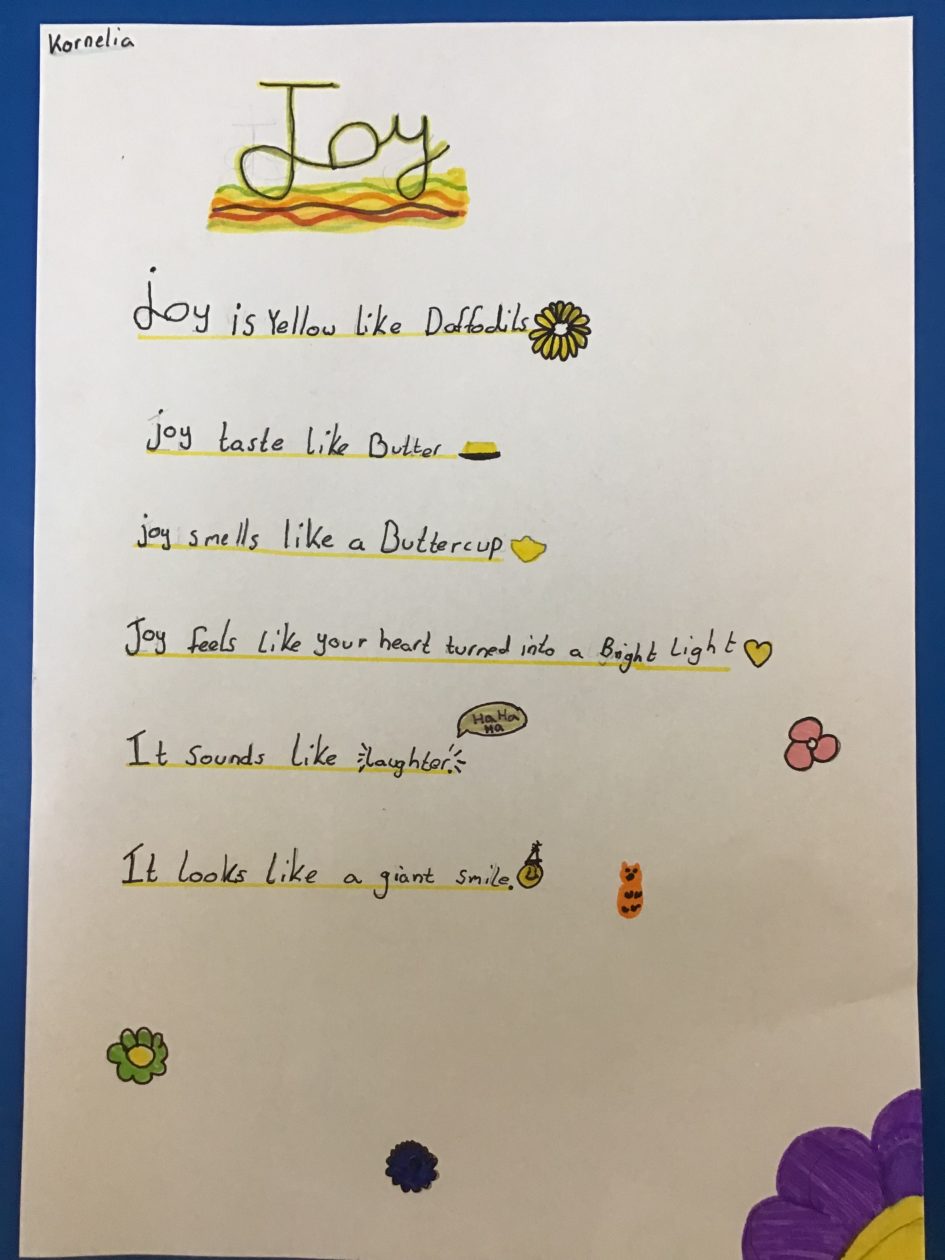 Kornelia
Joy
joy is Yellow like Daffodils
joy taste like Butter
joy smells like a Buttercup
Joy feels like your heart turned into a Bright Light
Ha Ha
Ha
It sounds like laughter.
It looks like a giant smile.